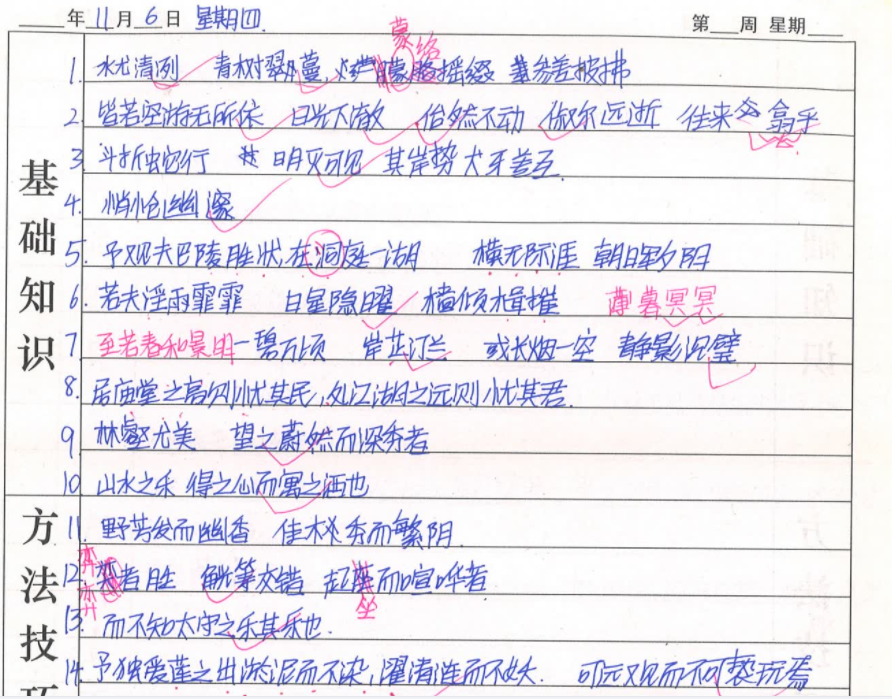 年11月6日 星期四 第 周 星期
蒙络
1. 水尤清冽 青树翠蔓,蒙络摇缀 参差披拂
2. 皆若空游无所依 日光下澈 佁然不动 俶尔远逝 往来翕乎
3. 斗折蛇行 明灭可见 其岸势犬牙差互.
4. 悄怆幽邃
5. 予观夫巴陵胜状,在洞庭一湖 横无际涯 朝晖夕阴
6. 若夫淫雨霏霏 日星隐曜 樯倾楫摧 薄暮冥冥
7. 至若春和景明 一碧万顷 岸芷汀兰 或长烟一空 静影沉璧
8. 居庙堂之高则忧其民,处江湖之远则忧其君.
9. 林壑尤美 望之蔚然而深秀者
10. 山水之乐 得之心而寓之酒也
11. 野芳发而幽香 佳木秀而繁阴.
12. 弈者胜 觥筹交错 起座而喧哗者
弈
坐
13. 而不知太守之乐其乐也.
14. 予独爱莲之出淤泥而不染,濯清涟而不妖. 可远观而不可亵玩焉
基础知识
方法技巧